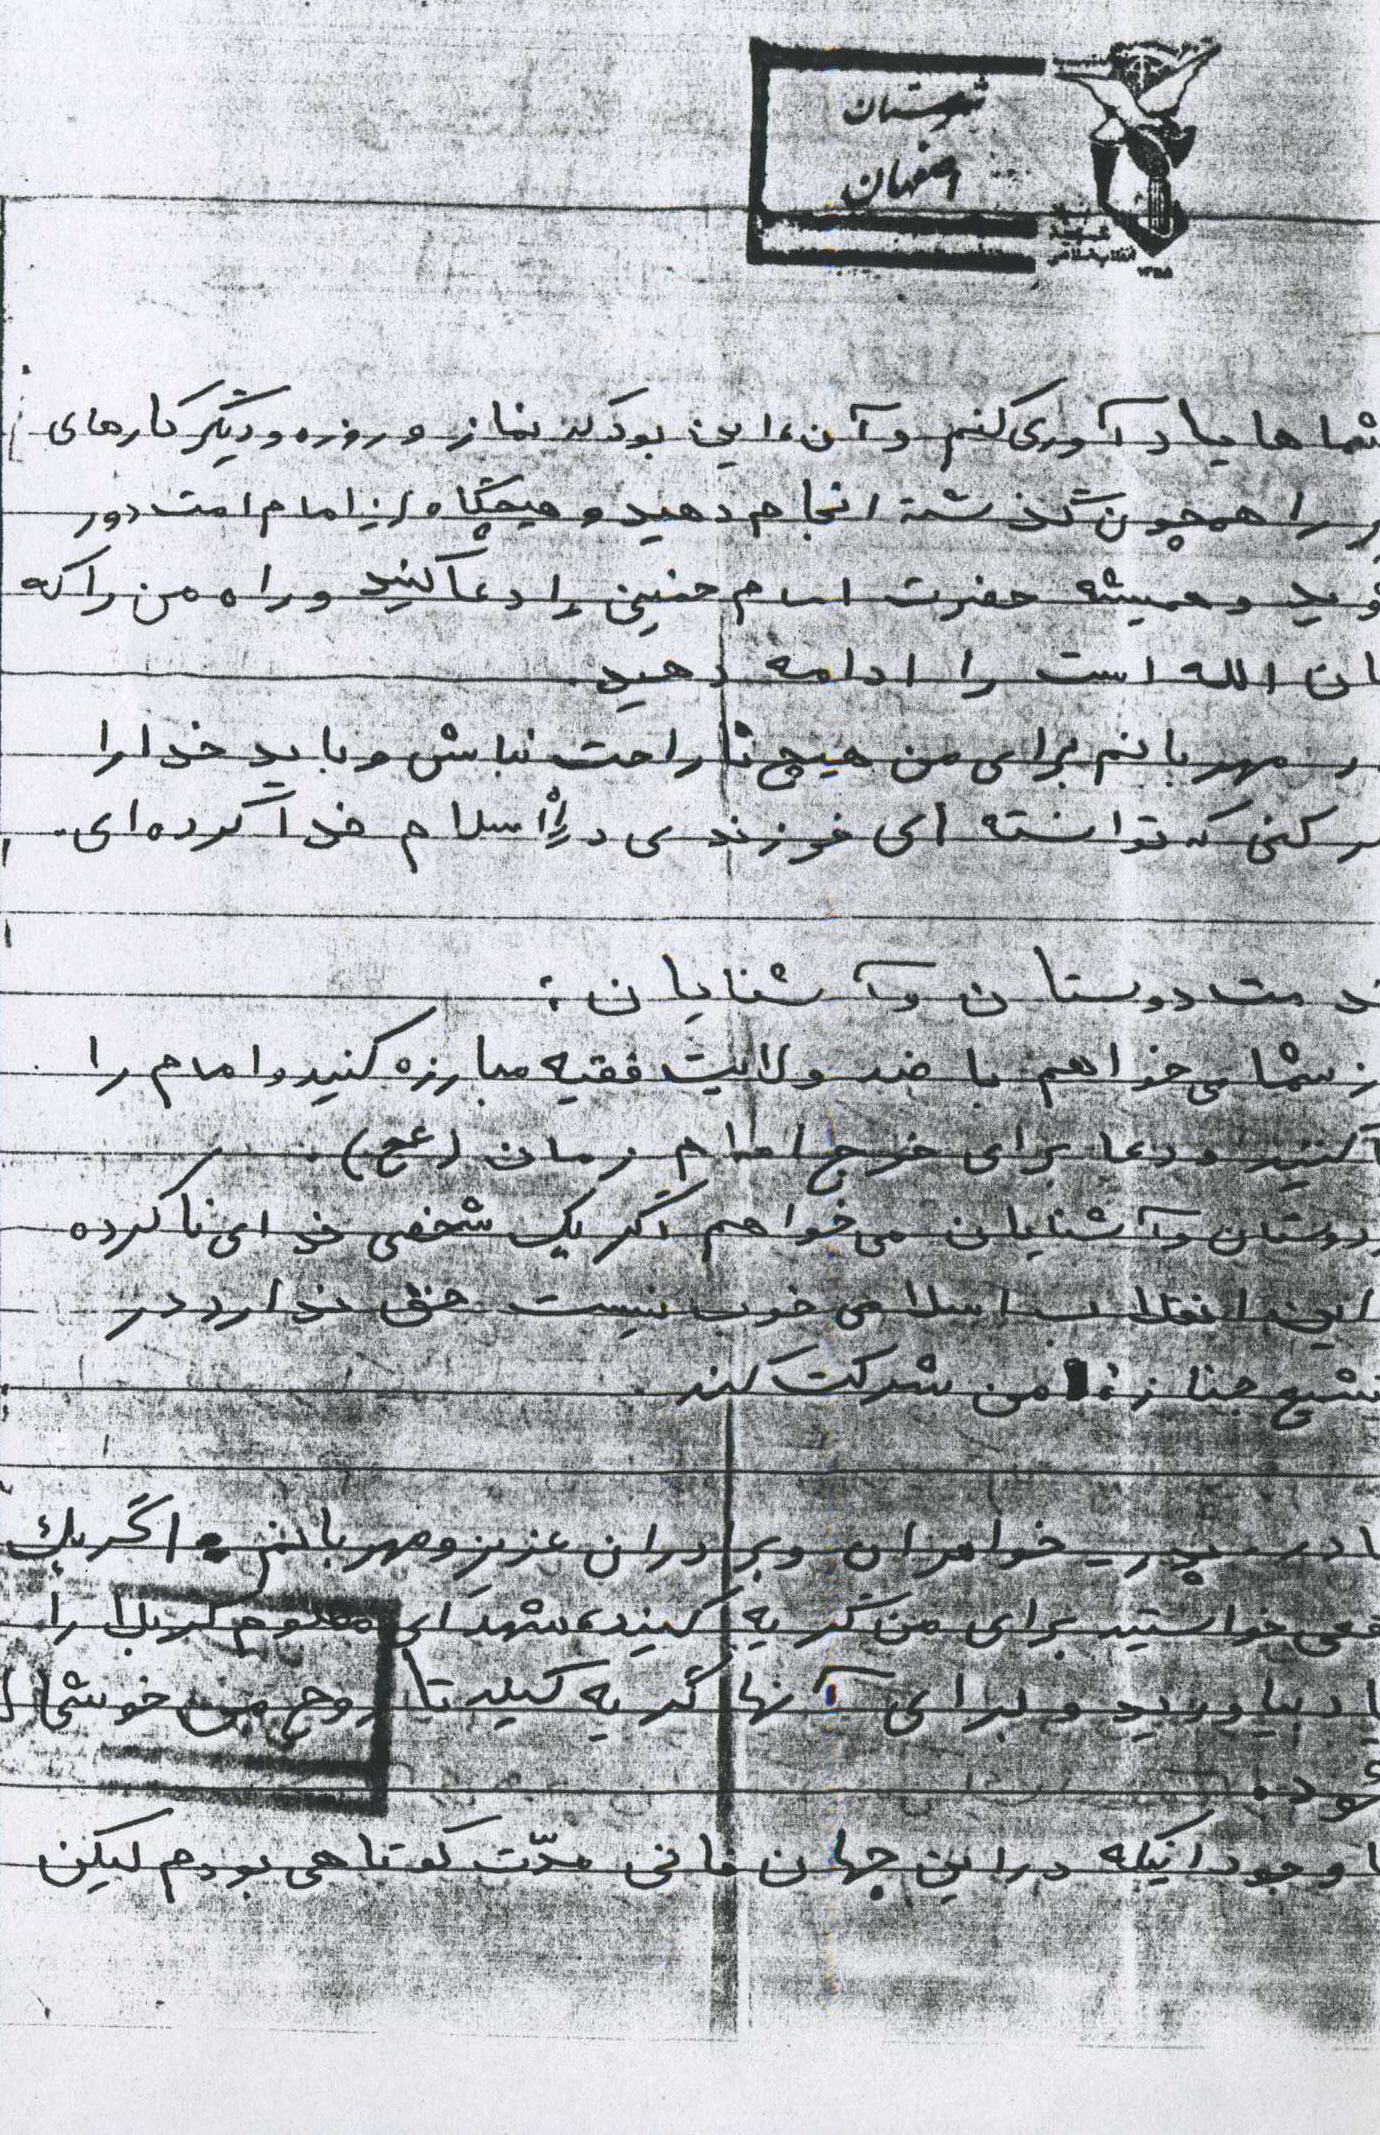 شهرستان
اصفهان
بنیاد
شهید
انقلاب اسلامی
۱۳۵۸
شماها یادآوری کنم و آن، این بود که نماز و روزه و دیگر کارهای
را همچون گذشته انجام دهید و هیچگاه از امام امت دور
وید و همیشه حضرت امام خمینی را دعا کنید و راه من را که
ان الله است را ادامه دهید.
ر مهربانم برای من هیچ ناراحت نباش و باید خدا را
ر کنی که توانسته ای فرزندی در راه اسلام فدا کرده‌ای.
مت دوستان و آشنایان:
ز شما می‌خواهم با ضد ولایت فقیه مبارزه کنید و امام را
ا کنید و دعا برای فرج امام زمان (عج).
دوستان و آشنایان می‌خواهم اگر یک شخصی خدای ناکرده
این انقلاب اسلامی خوب نیست حق ندارد در
تشیع جنازه من شرکت کند
ادر، پدر، خواهران و برادران عزیز و مهربانم اگر یک
قعی خواستید برای من گریه کنید، شهدای مظلوم کربلا را
یاد بیاورید و برای آنها گریه کنید تا روح من خوشحال
شود.
ا وجود اینکه در این جهان فانی مدّت کوتاهی بودم لیکن